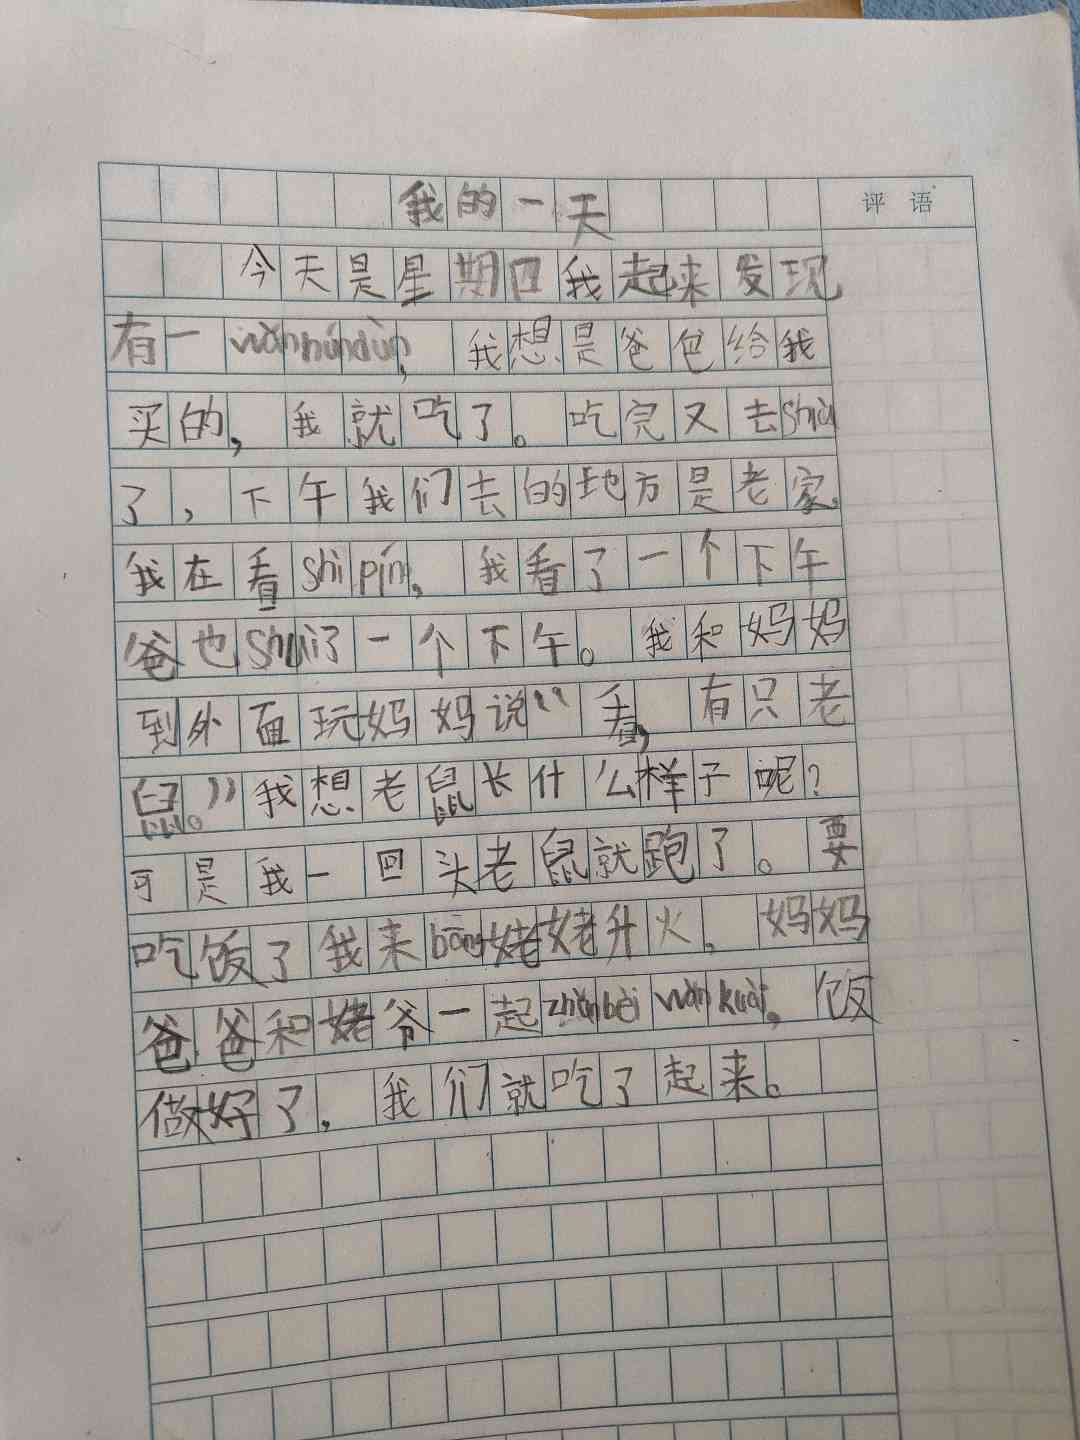 我的一天
评语
今天是星期四我起来发现
有一wǎnhúndùn,我想是爸爸给我
买的,我就吃了。吃完又去shuì
了,下午我们去的地方是老家。
我在看shìpín,我看了一个下午
爸也shuì了一个下午。我和妈妈
到外面玩妈妈说“看,有只老
鼠。”我想老鼠长什么样子呢?
可是我一回头老鼠就跑了。要
吃饭了我来bāng姥姥升火,妈妈
爸爸和姥爷一起zhǔnbèi wǎnkuài,饭
做好了,我们就吃了起来。